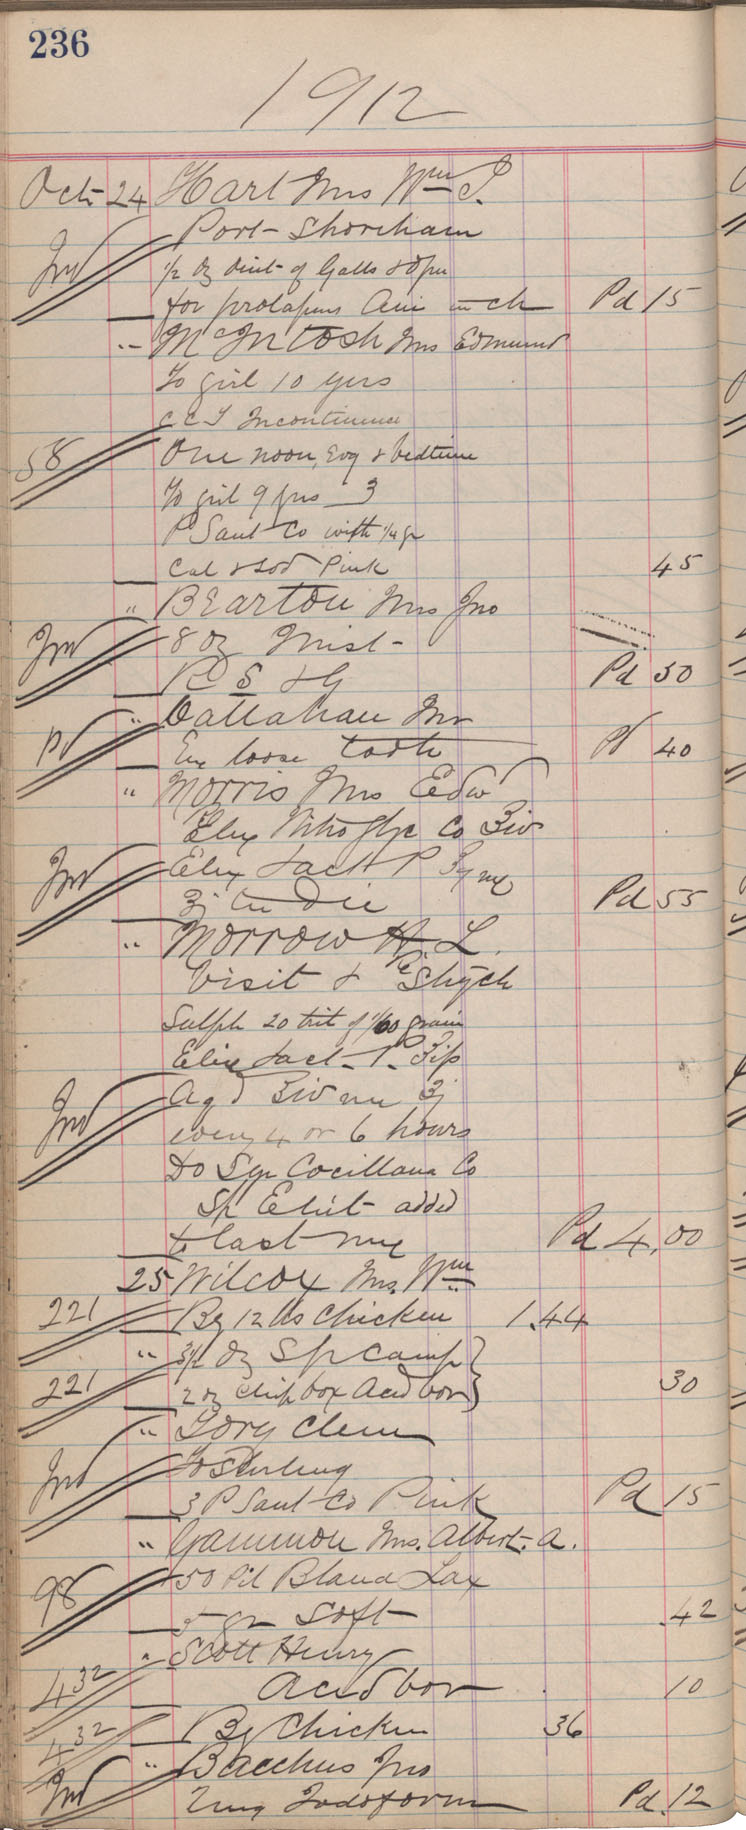 236
1912
Oct 24 Hart Mrs Wm J.
Port Shoreham
1/2 oz Oint of Galls & Opm
for prolapsus Ani in ch Pd 15
" McIntosh Mrs Edmund
To girl 10 yrs
C C T Incontinence
58 One noon, Evg & bedtime
To girl 9 yrs 3
P Sant Co with 1/4 gr
Cal & Sod Pink 45
" Bearton Mrs Jno
8 oz Mist
R S & G Pd 50
" Callahan Mr
Pd Ex loose tooth Pd 40
" Morris Mrs Edw
Elix Nitro Glyc Co ℥iv
Elix Lact P
ʒi ter Die Pd 55
" Morrow H L.
Visit & Re Strych
Sulph 20 trit of 1/60 grain
Elix Lact P
Aq d ℥iv mx ʒj
every 4 or 6 hours
Do Syr Cocillana Co
added
to last mx Pd 4.00
25 Wilcox Mrs. Wm
221 By 12 lbs Chicken 1.44
" oz Sp Camp
221 2 oz chip box Acid bor 30
" Tory Clem
To Sterling
3 P Sant Co Pink Pd 15
" Gammon Mrs. Albert. A.
98 50 Pil Blaud Lax
5 gr Soft .42
" Scott Henry
432 Acid bor 10
432 By Chicken 36
" Bacchus Jno
Ung Iodoform Pd .12